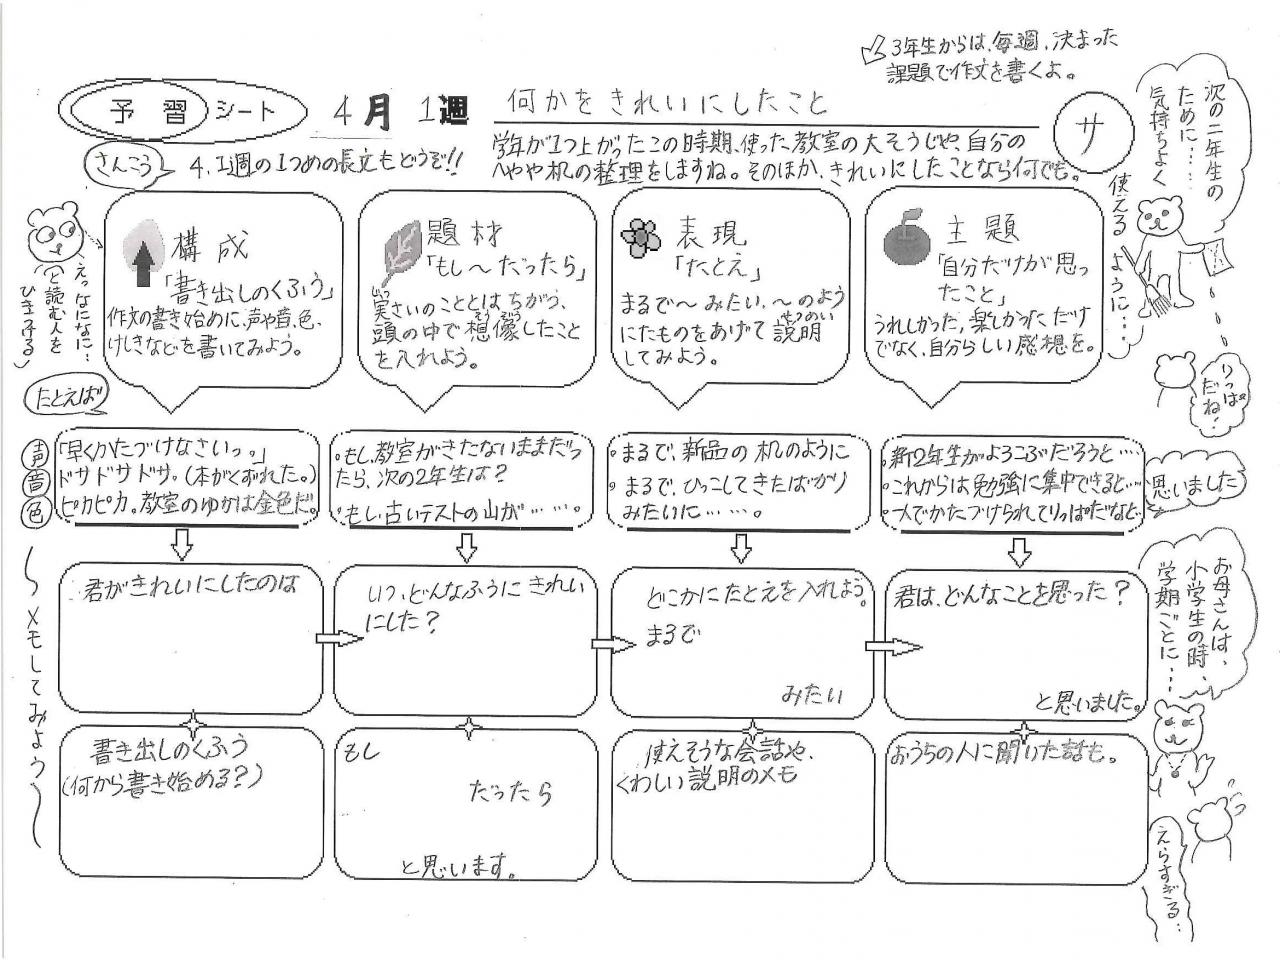 3年生からは、毎週、決まった
課題で作文を書くよ。
予習シート
4月 1週
何かをきれいにしたこと
サ
さんこう
4.1週の1つめの長文もどうぞ!!
学年が1つ上がったこの時期、使った教室の大そうじや、自分の
へやや机の整理をしますね。そのほか、きれいにしたことなら何でも。
次の二年生の
ために……
気持ちよく
使える
ように…
りっぱ
だね!
構成
「書き出しのくふう」
作文の書き始めに、声や音、色、
けしきなどを書いてみよう。
えっなになに…
と読む人を
ひきつける
題材
「もし〜だったら」
実さいのこととはちがう、
頭の中で想像したこと
を入れよう。
表現
「たとえ」
まるで〜みたい、〜のよう
にたものをあげて説明
してみよう。
主題
「自分だけが思っ
たこと」
うれしかった、楽しかった だけ
でなく、自分らしい感想を。
たとえば
声
音
色
「早くかたづけなさいっ。」
ドサドサドサ。(本がくずれた。)
ピカピカ。教室のゆかは金色だ。
・もし、教室がきたないままだっ
たら、次の2年生は?
・もし、古いテストの山が……。
・まるで、新品の机のように
・まるで、ひっこしてきたばかり
みたいに……。
・新2年生がよろこぶだろうと…
・これからは勉強に集中できると…
・一人でかたづけられてりっぱだなと…
思いました
〜メモしてみよう〜
君がきれいにしたのは
いつ、どんなふうにきれい
にした?
どこかにたとえを入れよう。
まるで
みたい
君は、どんなことを思った?
と思いました。
お母さんは、
小学生の時、
学期ごとに…
書き出しのくふう
(何から書き始める?)
もし
だったら
と思います。
使えそうな会話や、
くわしい説明のメモ
おうちの人に聞いた話も。
えらすぎる…